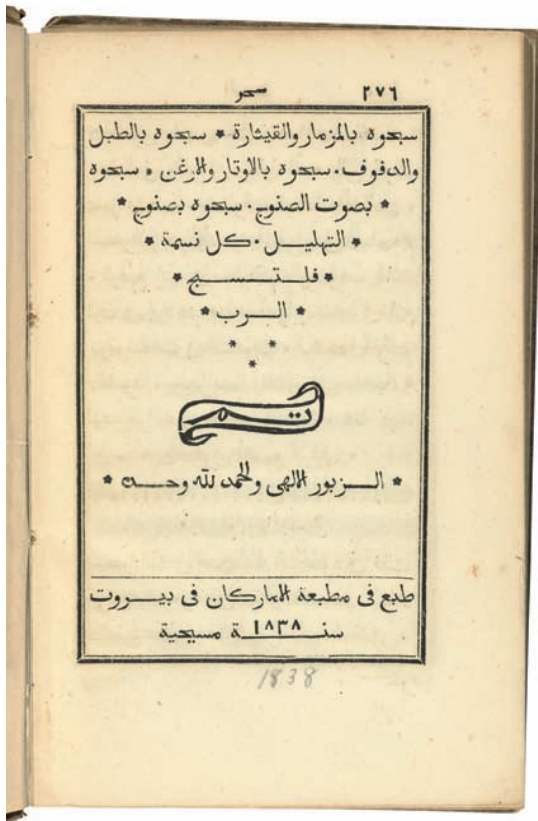 ٢٧٦ سحر
سبحوه بالمزمار والقيثارة * سبحوه بالطبل
والدفوف. سبحوه بالاوتار والارغن . سبحوه
* بصوت الصنوج. سبحوه بصنوج *
* التهليل . كل نسمة *
* فلتسبح *
* الرب *
* * *
تم
* الزبور الالهى والحمد لله وحده *
طبع فى مطبعة الاماركان فى بيروت
سنة ١٨٣٨ مسيحية
1838